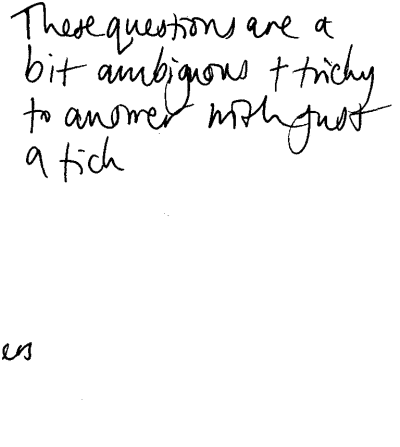 These questions are a
bit ambiguous + tricky
to answer with just
a tick
es